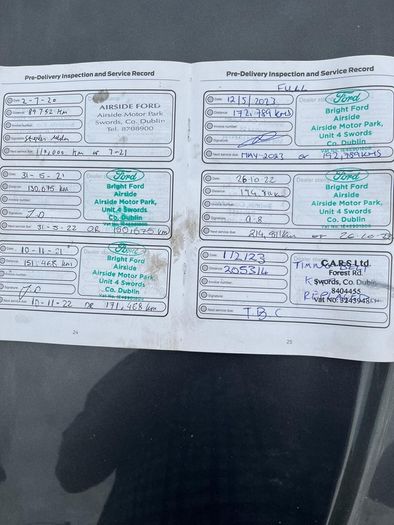 Pre-Delivery Inspection and Service Record
Date 2-7-20
Distance 89752 Km
Invoice number
Signature
Next service due 110,000 Km or 7-21
AIRSIDE FORD
Airside Motor Park
Swords, Co. Dublin
Tel. 8708900
Date 31-5-21
Distance 130,675 km
Invoice number
Signature J.D
Next service due 31-5-22 OR 150,675 km
Ford
Bright Ford
Airside
Airside Motor Park,
Unit 4 Swords
Co. Dublin
Date 10-11-21
Distance 151,468 km
Invoice number
Signature J.D
Next service due 10-11-22 OR 171,468 km
Ford
Bright Ford
Airside
Airside Motor Park,
Unit 4 Swords
Co. Dublin
24
Pre-Delivery Inspection and Service Record
FULL
Date 12/5/2023
Distance 172,789 kms
Invoice number
Signature
Next service due MAY-2023 or 192,789 kms
Dealer
Ford
Bright Ford
Airside
Airside Motor Park,
Unit 4 Swords
Co. Dublin
Date 26.10.22
Distance
Invoice number
Signature
Next service due
Ford
Bright Ford
Airside
Airside Motor Park,
Unit 4 Swords
Co. Dublin
Date
Distance 205314
Invoice number
Signature
Next service due T.B.C
C.A.R.S Ltd.
Forest Rd.
Swords, Co. Dublin
8404455
25